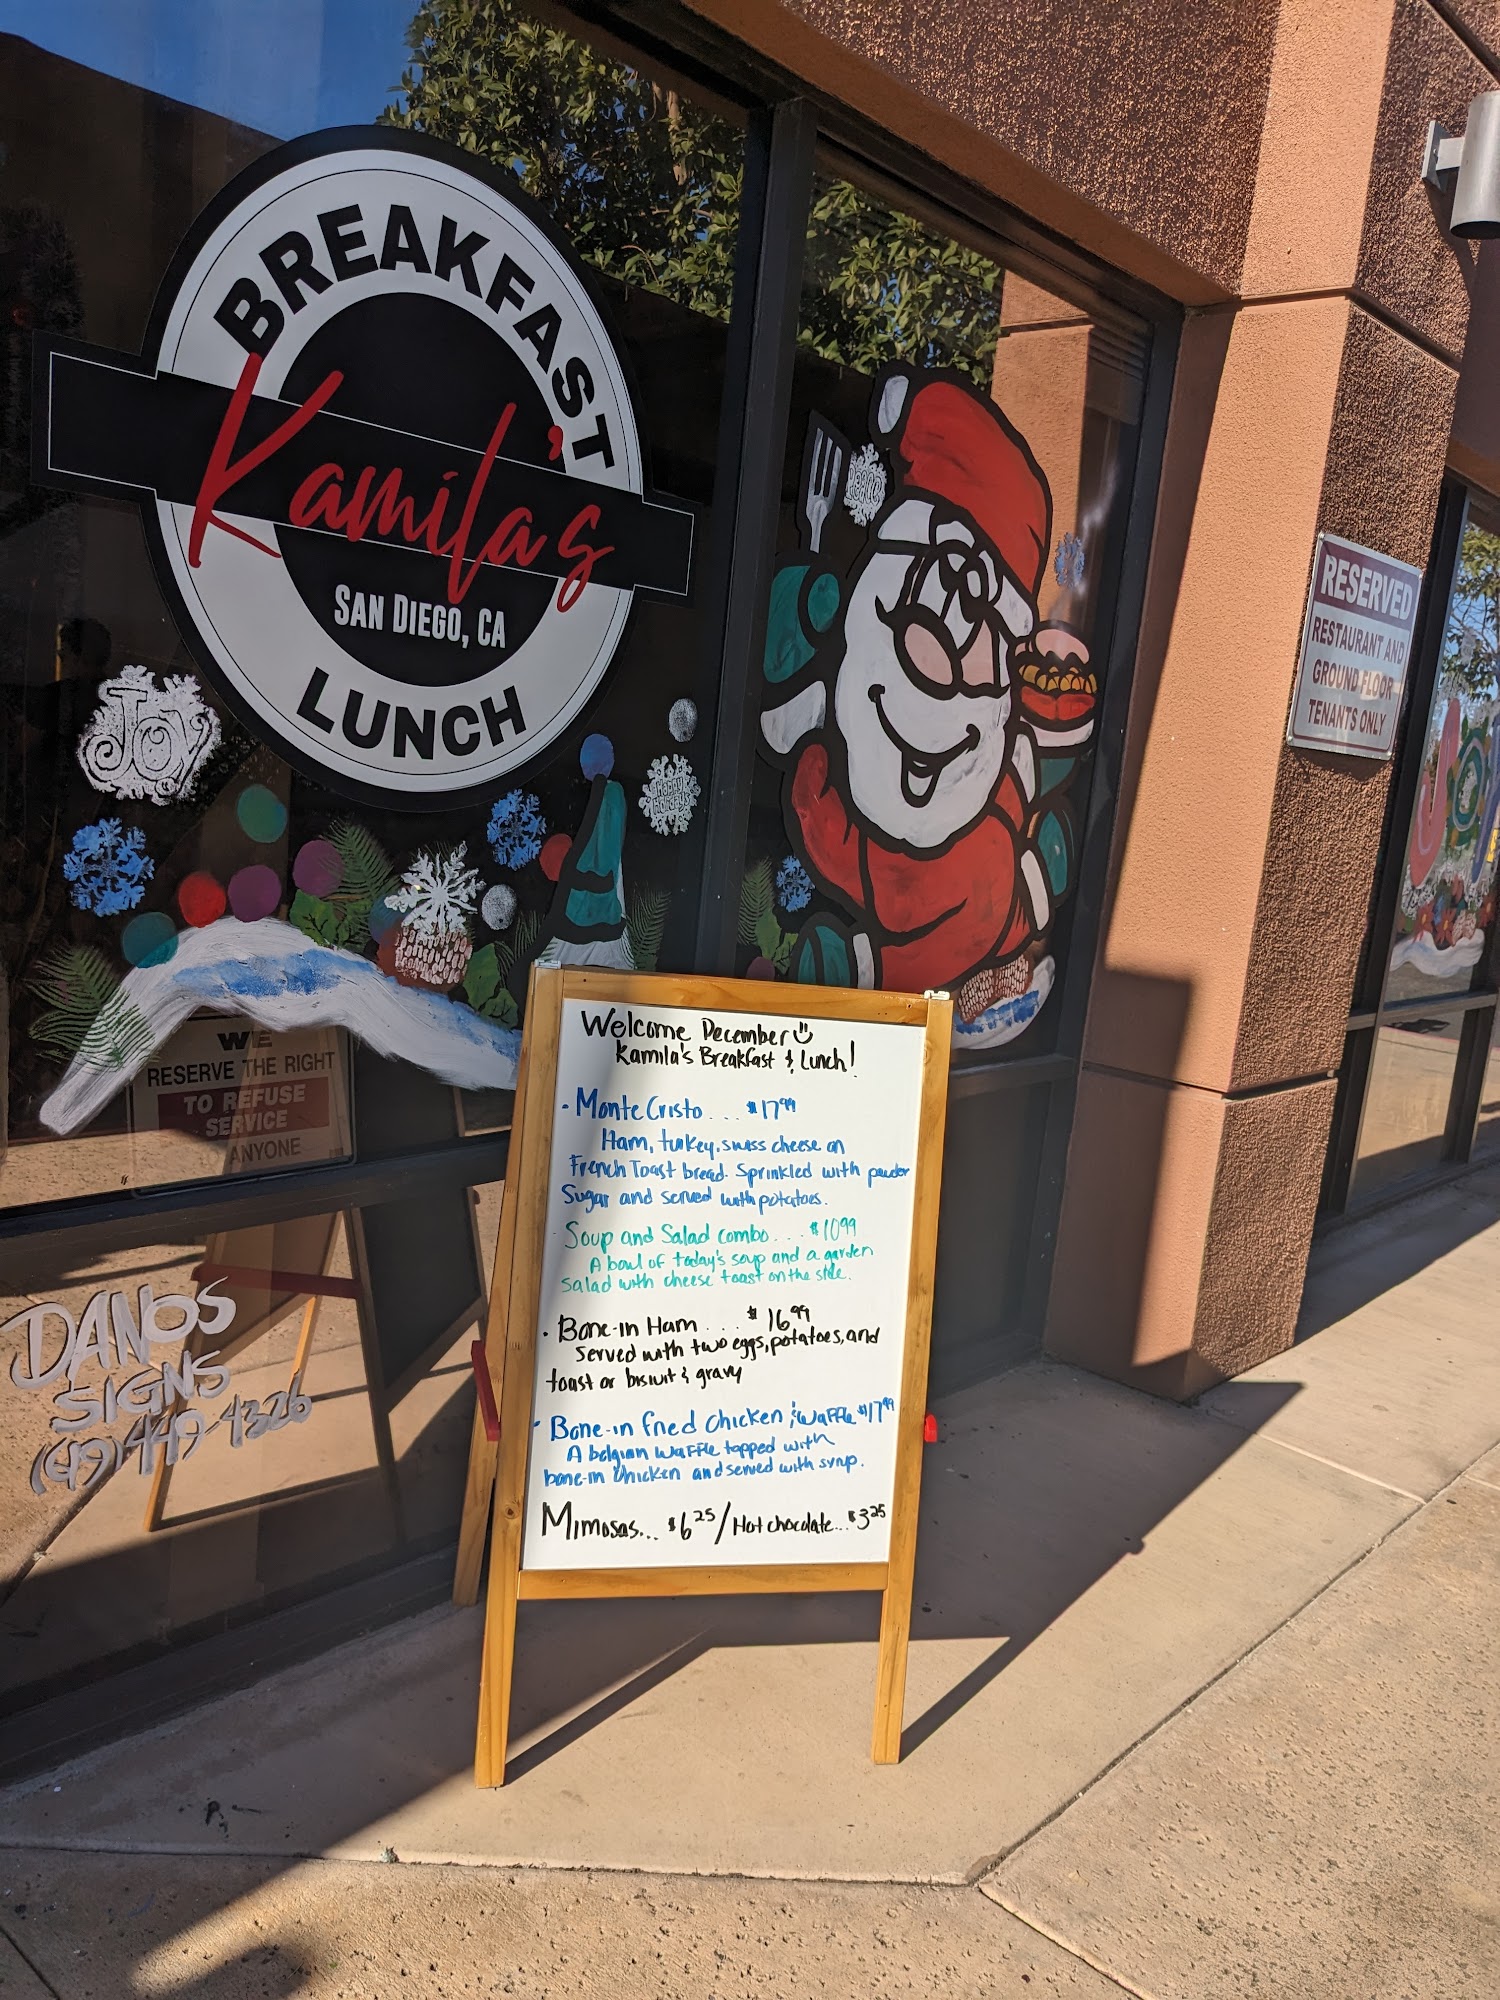 BREAKFAST
Kamila's
SAN DIEGO, CA
LUNCH
Joy
Peace
Happy
Holidays
RESERVED
RESTAURANT AND
GROUND FLOOR
TENANTS ONLY
WE
RESERVE THE RIGHT
TO REFUSE
SERVICE
ANYONE
DANOS
SIGNS
(619) 449-4326
Welcome December
Kamila's Breakfast & Lunch!
• Monte Cristo... $17.99
Ham, turkey, swiss cheese on
French Toast bread. Sprinkled with powder
Sugar and served with potatoes.
Soup and Salad combo... $10.99
A bowl of today's soup and a garden
Salad with cheese toast on the side.
• Bone-in Ham... $16.99
Served with two eggs, potatoes, and
toast or biscuit & gravy
• Bone-in fried chicken & waffle $17.99
A belgian waffle topped with
bone-in chicken and served with syrup.
Mimosas... $6.25 / Hot chocolate... $3.25